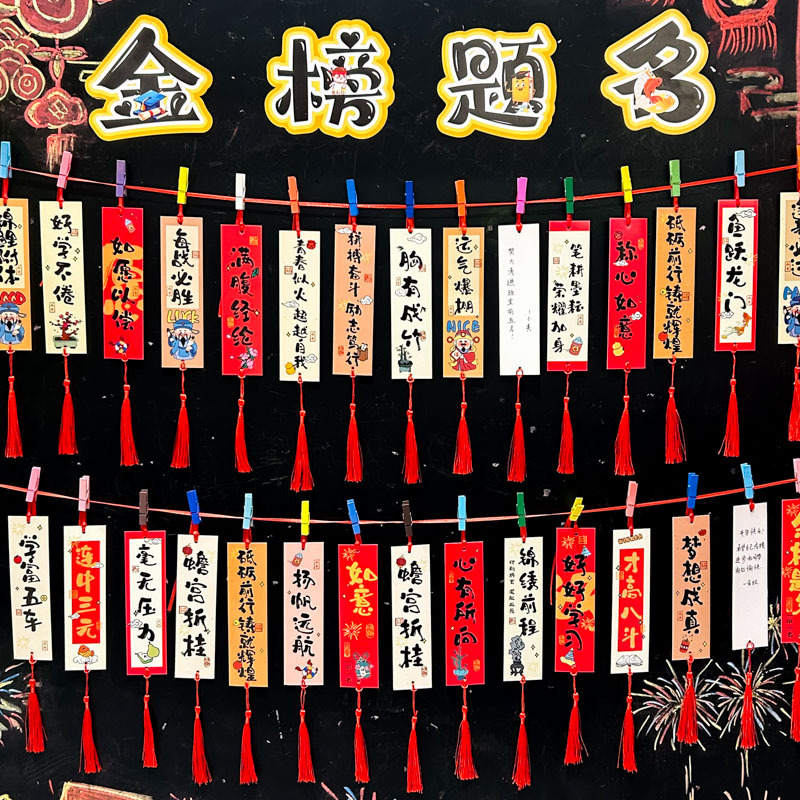 金榜题名
锦鲤附体
好学不倦
如愿以偿
每战必胜
LUCK
满腹经纶
青春似火 超越自我
拼搏奋斗 励志笃行
胸有成竹
运气爆棚
NICE
笔耕墨耘 荣耀加身
称心如意
砥砺前行 铸就辉煌
鱼跃龙门
学富五车
连中三元
毫无压力
蟾宫折桂
砥砺前行 铸就辉煌
扬帆远航
如意
蟾宫折桂
心有所向
锦绫前程
好好学习
WINNER
才高八斗
梦想成真